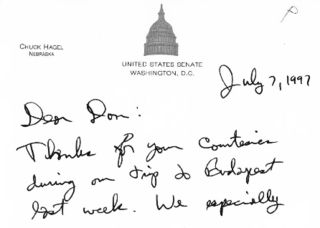 CHUCK HAGEL
NEBRASKA
UNITED STATES SENATE
WASHINGTON, D.C.
July 7, 1997
Dear Don:
Thanks for your Courtesies
during our trip to Budapest
last week. We especially